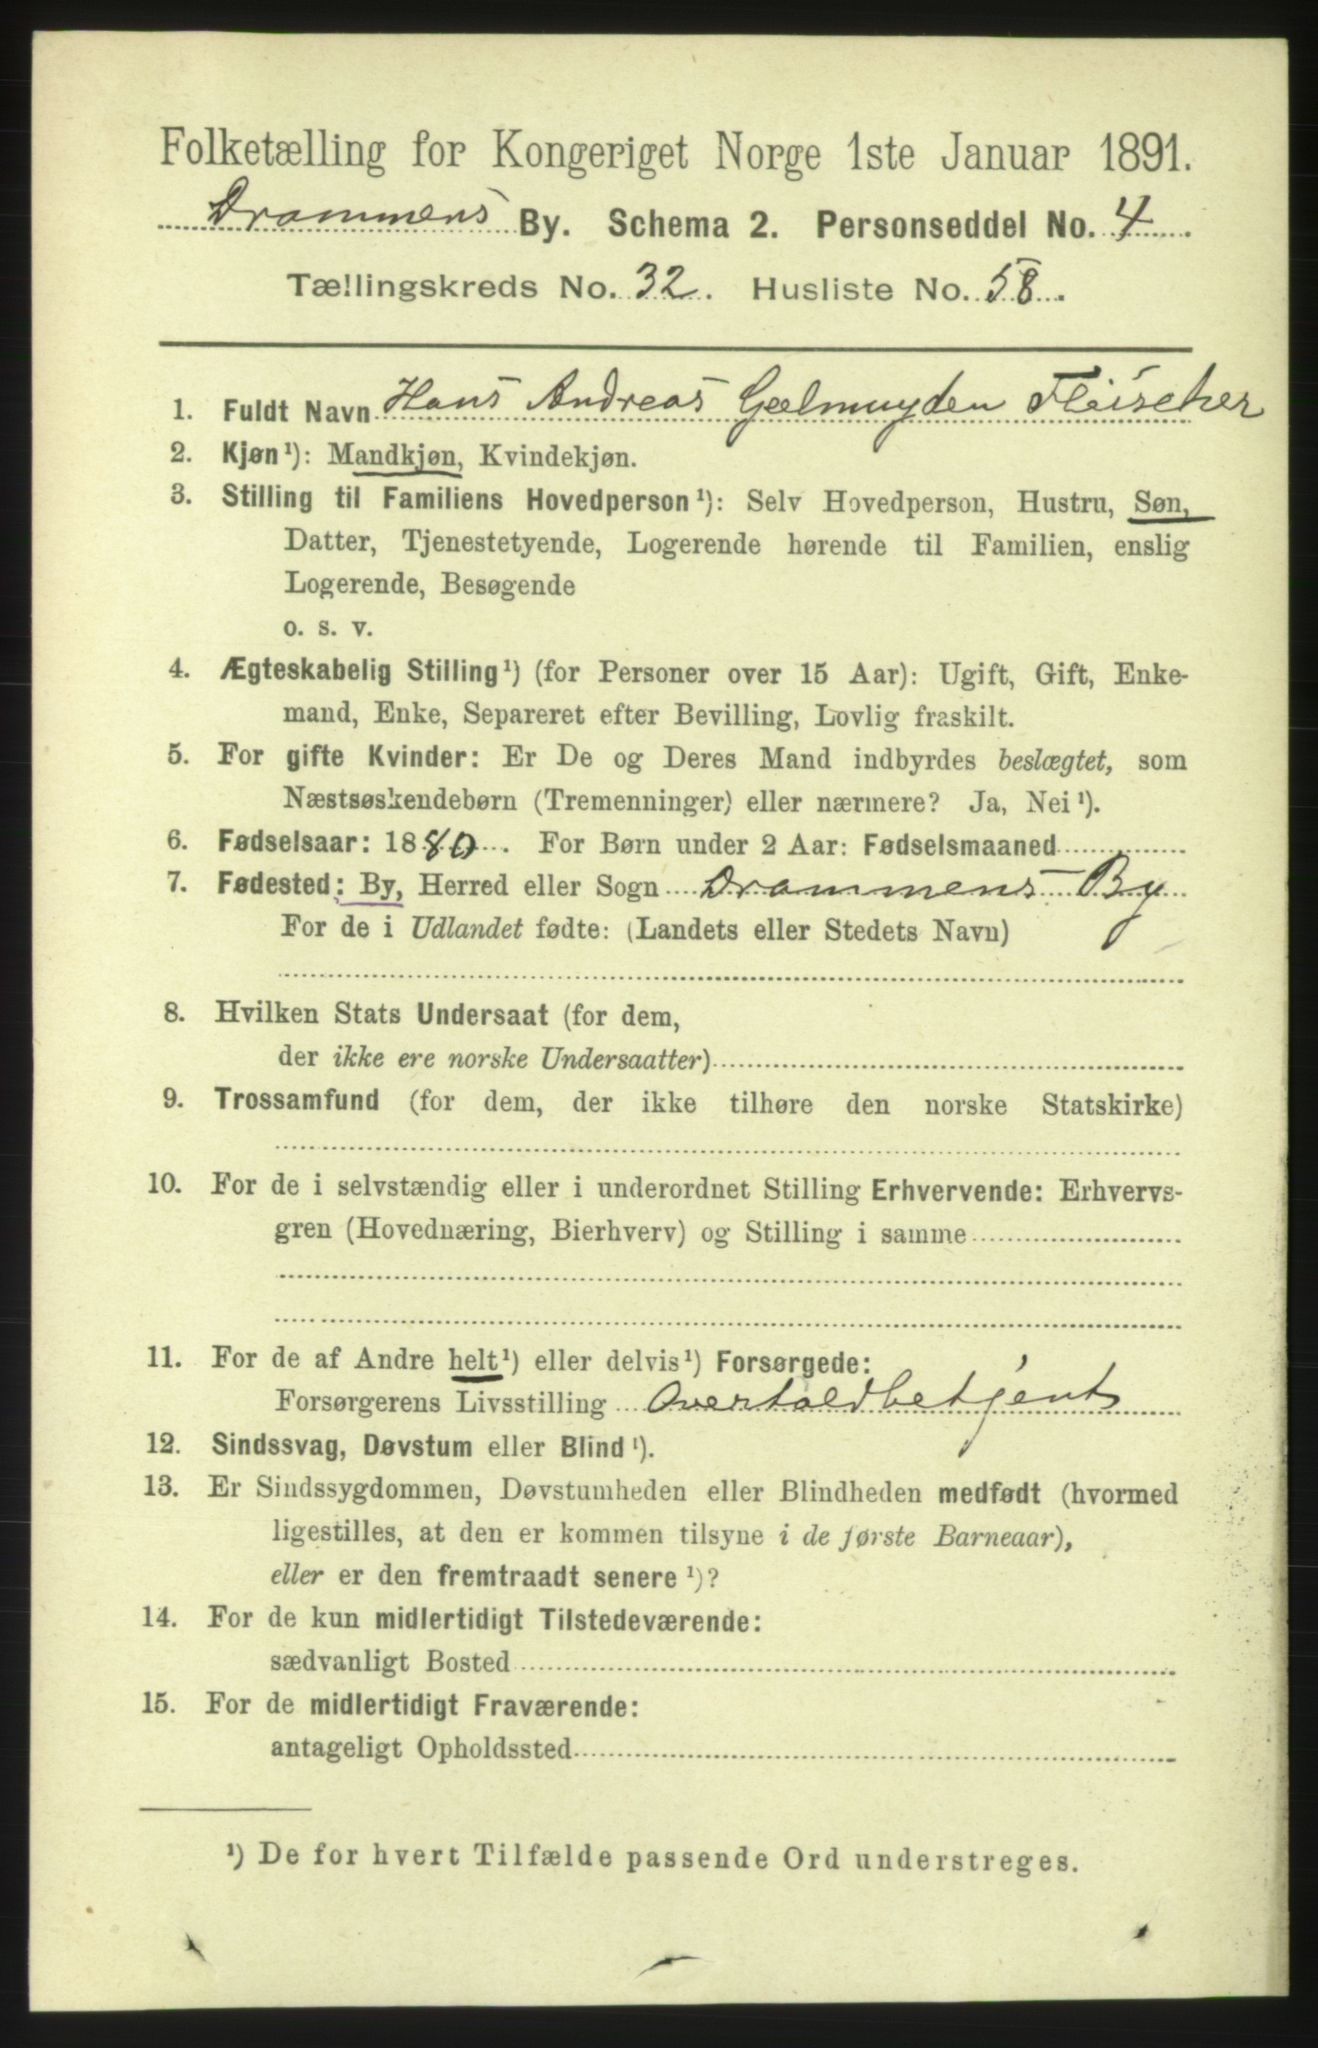 Folketælling for Kongeriget Norge 1ste Januar 1891.
Drammens By. Schema 2. Personseddel No. 4.
Tællingskreds No. 32. Husliste No. 58.
1. Fuldt Navn Hans Andreas Gelmuyden Fleischer
2. Kjøn¹): Mandkjøn, Kvindekjøn.
3. Stilling til Familiens Hovedperson¹): Selv Hovedperson, Hustru, Søn,
Datter, Tjenestetyende, Logerende hørende til Familien, enslig
Logerende, Besøgende
o. s. v.
4. Ægteskabelig Stilling¹) (for Personer over 15 Aar): Ugift, Gift, Enke-
mand, Enke, Separeret efter Bevilling, Lovlig fraskilt.
5. For gifte Kvinder: Er De og Deres Mand indbyrdes beslægtet, som
Næstsøskendebørn (Tremenninger) eller nærmere? Ja, Nei¹).
6. Fødselsaar: 1880. For Børn under 2 Aar: Fødselsmaaned
7. Fødested: By, Herred eller Sogn Drammens By
For de i Udlandet fødte: (Landets eller Stedets Navn)
8. Hvilken Stats Undersaat (for dem,
der ikke ere norske Undersaatter)
9. Trossamfund (for dem, der ikke tilhøre den norske Statskirke)
10. For de i selvstændig eller i underordnet Stilling Erhvervende: Erhvervs-
gren (Hovednæring, Bierhverv) og Stilling i samme
11. For de af Andre helt¹) eller delvis¹) Forsørgede:
Forsørgerens Livsstilling Overtoldbetjent
12. Sindssvag, Døvstum eller Blind¹).
13. Er Sindssygdommen, Døvstumheden eller Blindheden medfødt (hvormed
ligestilles, at den er kommen tilsyne i de første Barneaar),
eller er den fremtraadt senere¹)?
14. For de kun midlertidigt Tilstedeværende:
sædvanligt Bosted
15. For de midlertidigt Fraværende:
antageligt Opholdssted
¹) De for hvert Tilfælde passende Ord understreges.